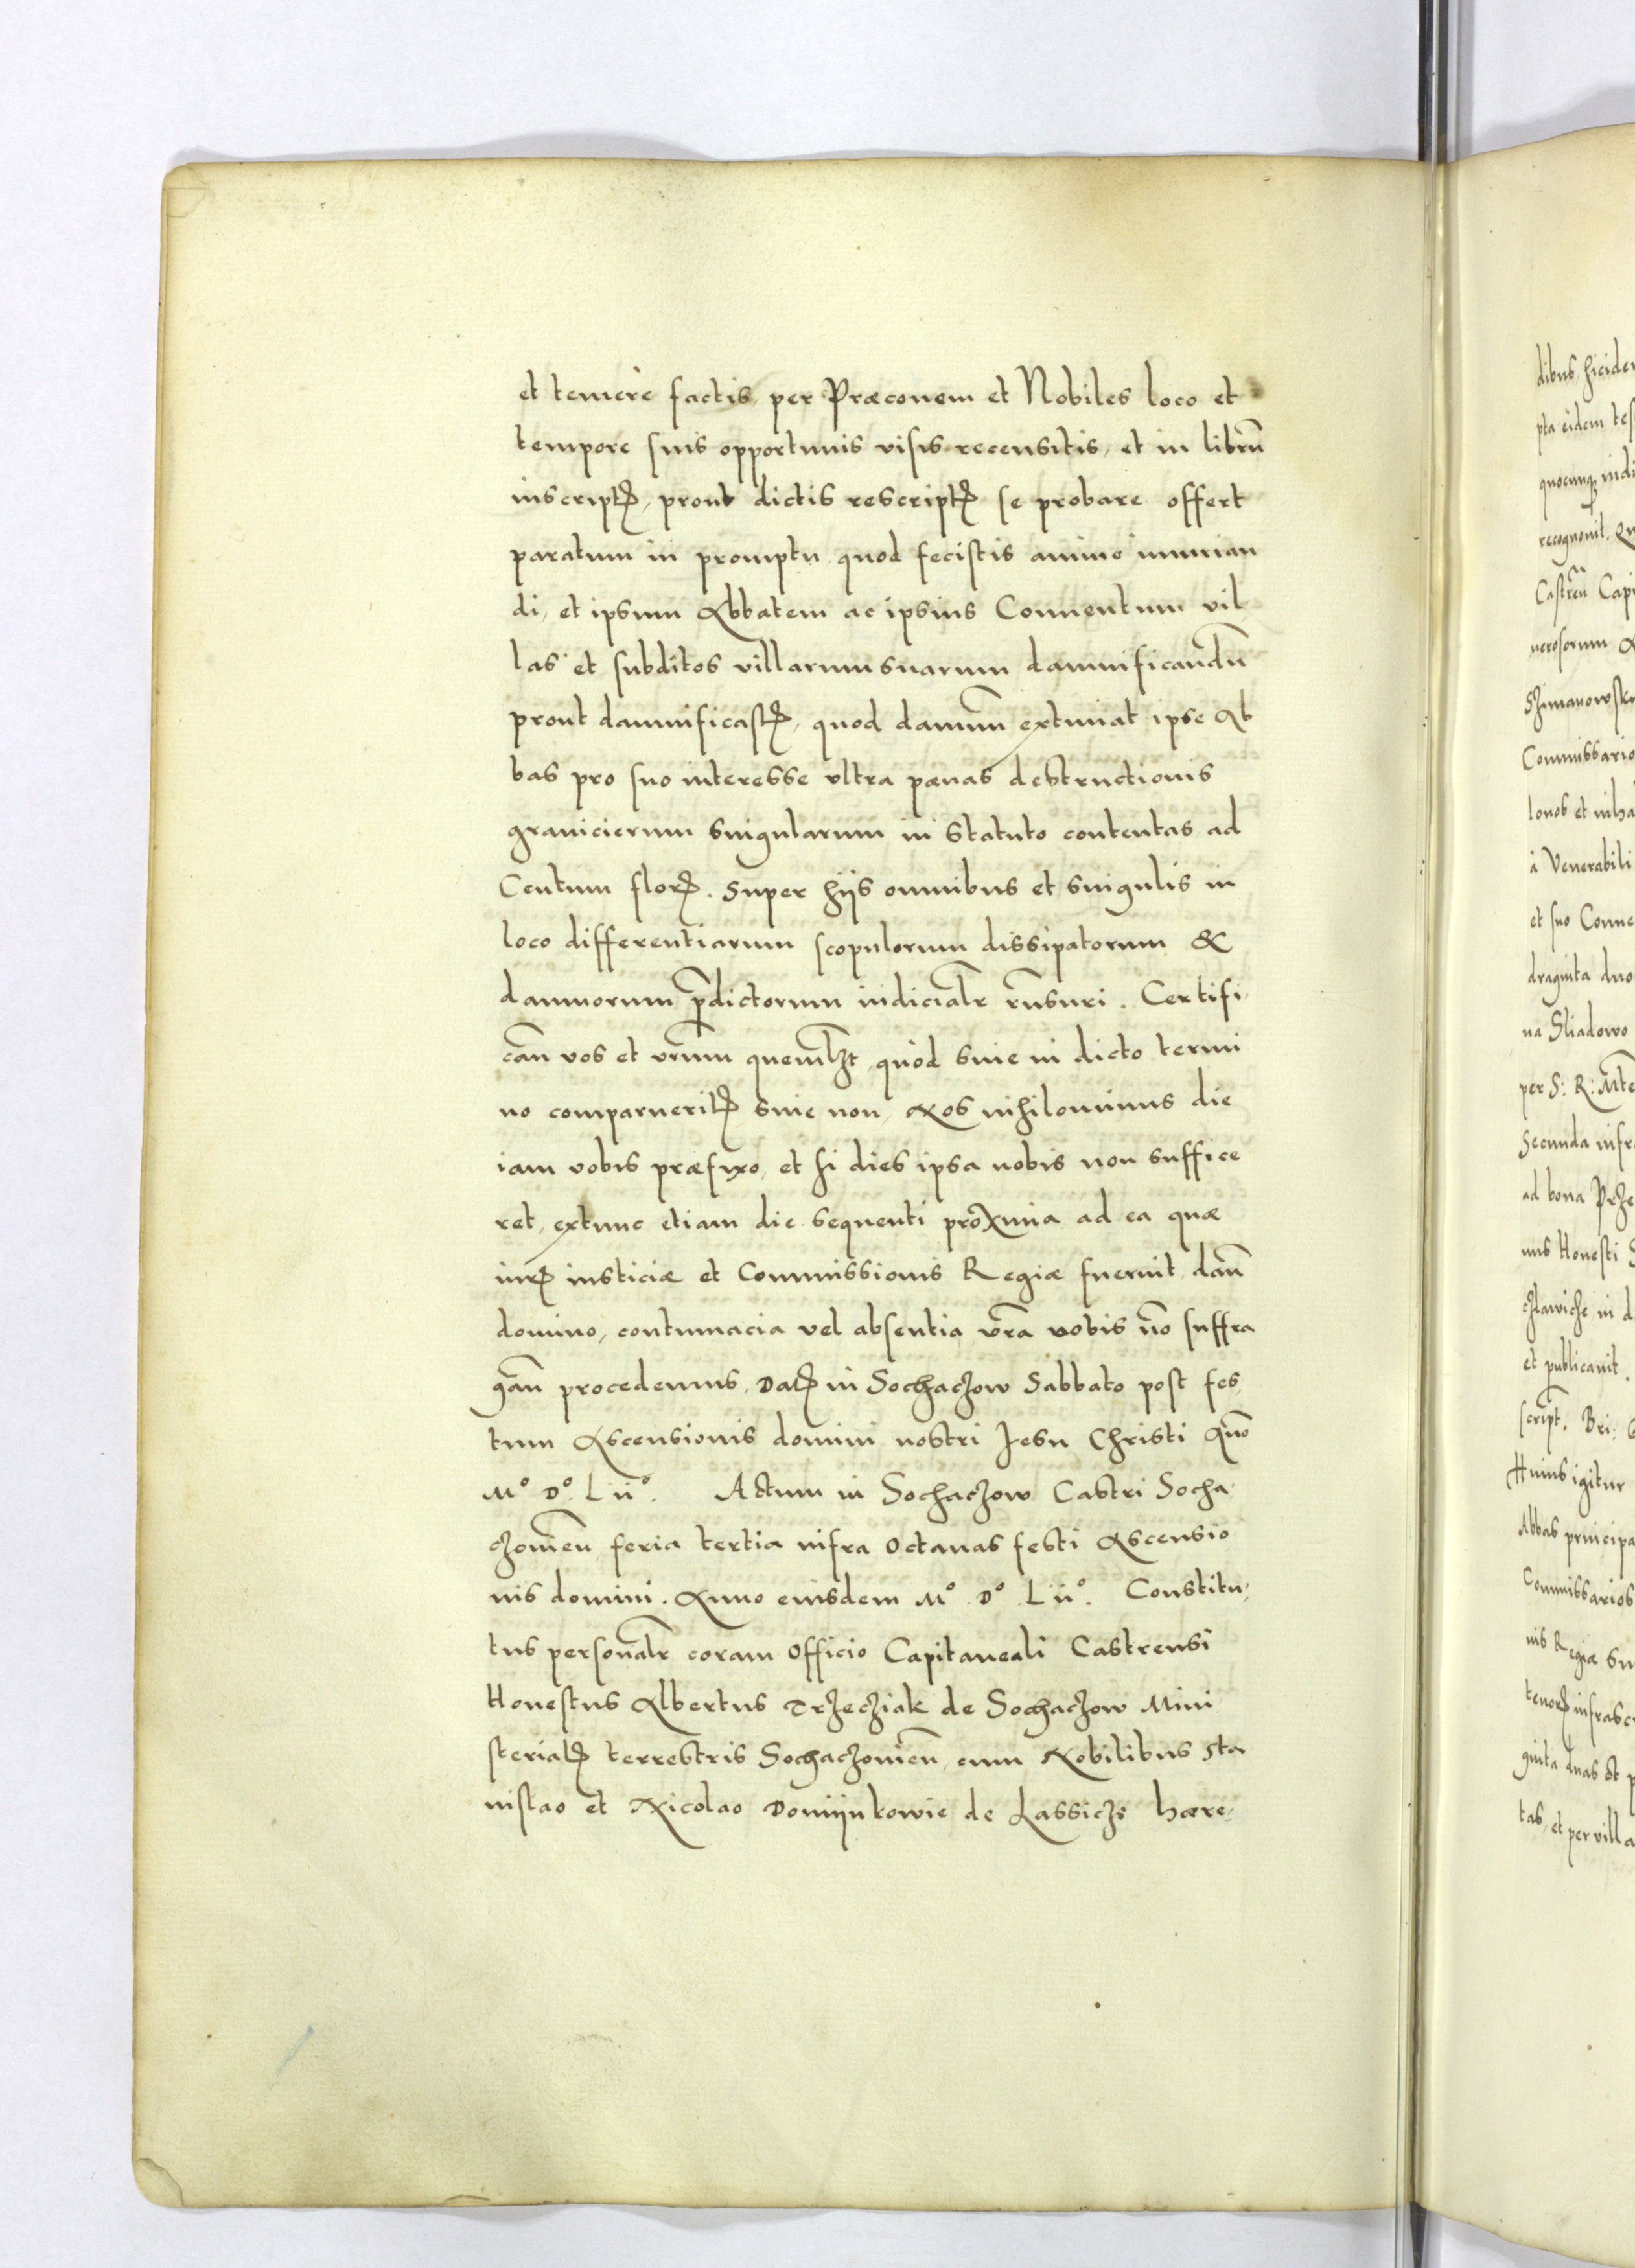 et temerè factis, per Præconem et Nobiles loco et
tempore suis opportunis visis recensitis, et in libru͞
inscriptꝭ, prout dictis rescriptꝭ se probare offert
paratum in promptu, quod fecistis animo iniurian
di, et ipsum Abbatem ac ipsius Conuentum vil
las et subditos villarum suarum damnificandu͞
prout damnificastꝭ, quod damnu͞ extimat ipse Ab
bas pro suo interesse vltra pænas destructionis
granicierum singularum in statuto contentas ad
Centum florꝭ. Super hijs omnibus et singulis in
loco differentiarum scopulorum dissipatorum &
damnorum p͞dictorum iudicialr͞ rn͞suri. Certifi,
can͞ vos et vr͞um quemlꝫt, quòd siue in dicto termi
no comparueritꝭ siue non, Nos nihilominus die
iam vobis præfixo, et si dies ipsa nobis non suffice
ret, extunc etiam die sequenti proxima ad ea quæ
iurꝭ iusticiæ et Commissionis Regiæ fuerint, dan͞
domino, contumacia vel absentia vr͞a vobis no͞n suffra
gan͞ procedemus, Datꝭ in Sochaczow Sabbato post fes,
tum Ascensionis domini nostri Jesu Christi An͞o
Mº Dº Lijº. Actum in Sochaczow Castri Socha,
czouien͞ feria tertia infra Octauas festi Ascensio
nis domini. Anno eiusdem Mº. Dº. Lijº. Constitu,
tus personalr͞ coram Officio Capitaneali Castrensi
Honestus Albertus Trzecziak de Sochaczow Mini
sterialꝭ terrestris Sochaczouien͞, cum Nobilibus Sta
nislao et Nicolao Domijnkowie de Lassicze hære,
dibus, hicide
pta eidem tes
recognouit. Qu
Castren͞ Capi
Szimanowsk
Commissario
lonos et inha
à Venerabili
et suo Conue
draginta duo
na Sliadowo
per S: R: Mte
Secunda infr
ad bona Prze
nus Honesti S
et publicauit.
script. Bri:
Huius igitur
Abbas principa
Commissarios
nis Regiæ su
tenorꝭ infrasc
ginta duas et p
tas, et per villa